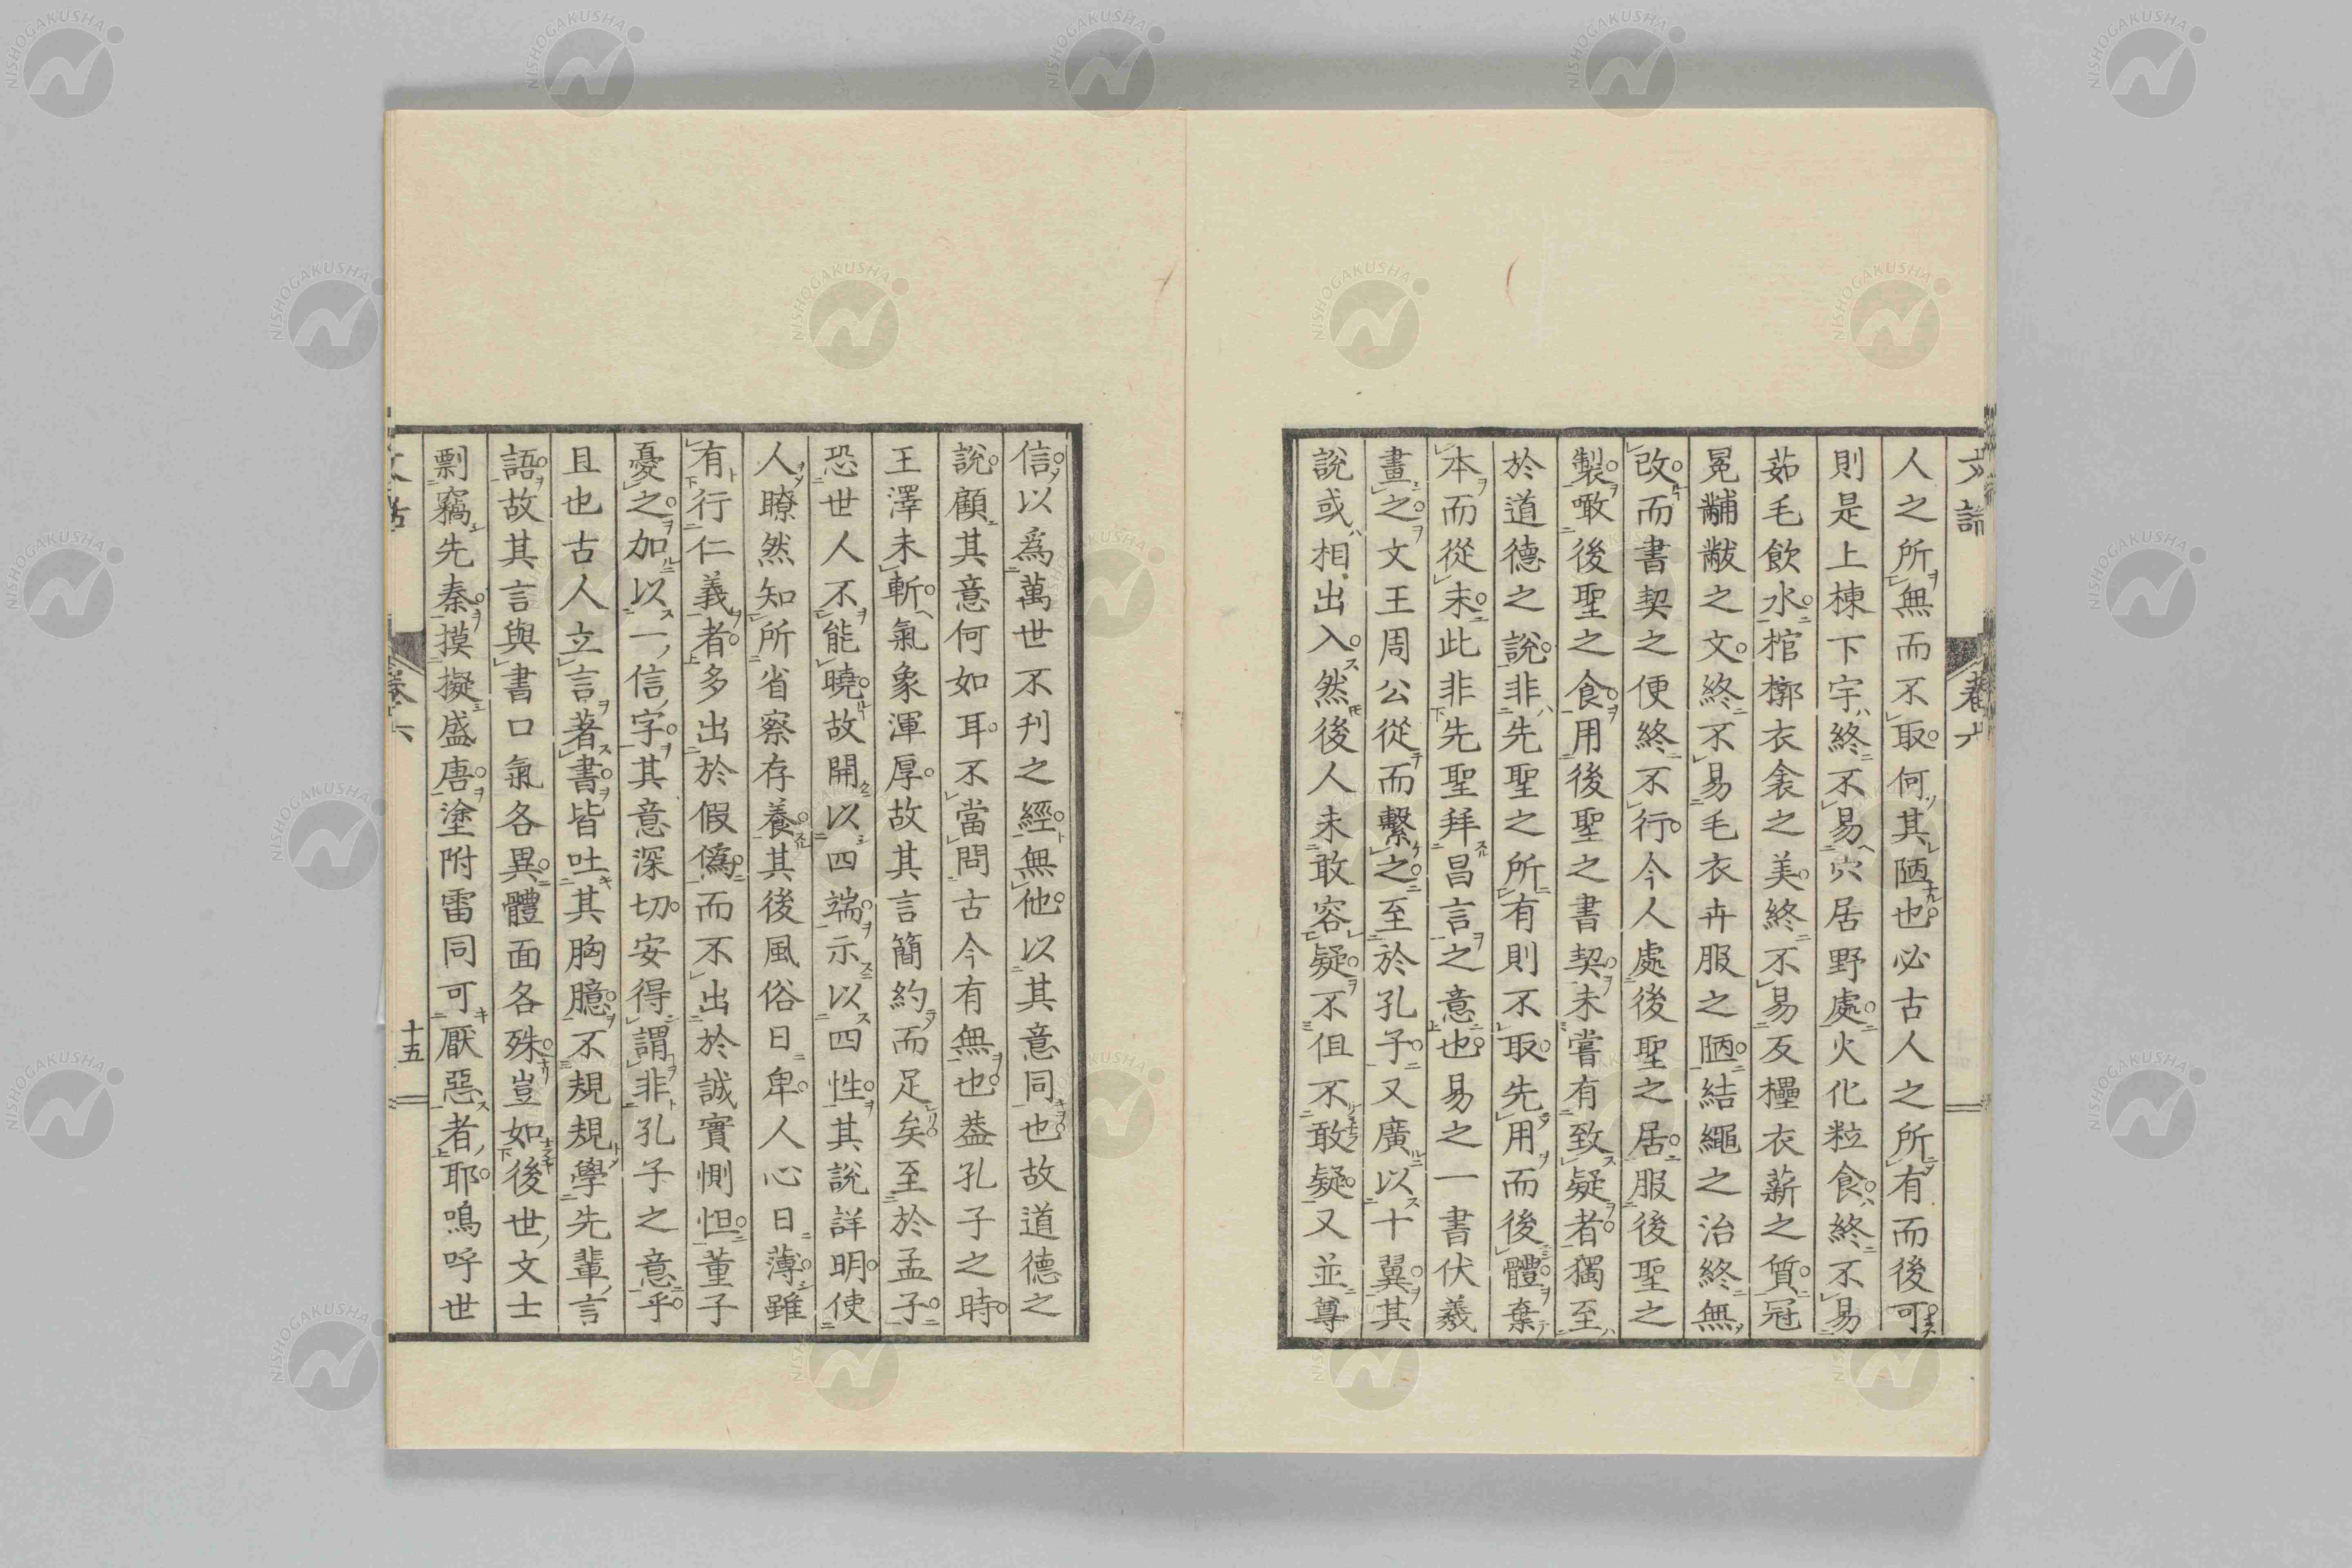 人之所無而不取何其陋也必古人之所有而後可
則是上棟下宇終不易穴居野處火化粒食終不易
茹毛飲水棺槨衣衾之美終不易瓦櫑衣薪之質冠
冕黼黻之文終不易毛衣卉服之陋結繩之治終無
改而書契之便終不行今人處後聖之居服後聖之
製噉後聖之食用後聖之書契未嘗有致疑者獨至
於道德之說非先聖之所有則不取先用而後體棄
本而從末此非先聖拜昌言之意也易之一書伏羲
畫之文王周公從而繫之至於孔子又廣以十翼其
說或相出入然後人未敢容疑不但不敢疑又並尊
信以爲萬世不刊之經無他以其意同也故道德之
說顧其意何如耳不當問古今有無也蓋孔子之時
王澤未斬氣象渾厚故其言簡約而足矣至於孟子
恐世人不能曉故開以四端示以四性其說詳明使
人瞭然知所省察存養其後風俗日卑人心日薄雖
有行仁義者多出於假僞而不出於誠實惻怛董子
憂之加以一信字其意深切安得謂非孔子之意乎
且也古人立言著書皆吐其胸臆不規規學先輩言
語故其言與書口氣各異體面各殊豈如後世文士
剽竊先秦摸擬盛唐塗附雷同可厭惡者耶嗚呼世
卷六
十五